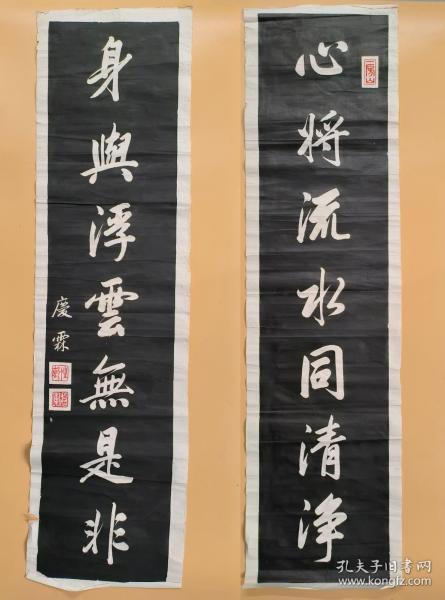 心將流水同清淨
身與浮雲無是非
慶霖
孔夫子旧书网
www.kongfz.com